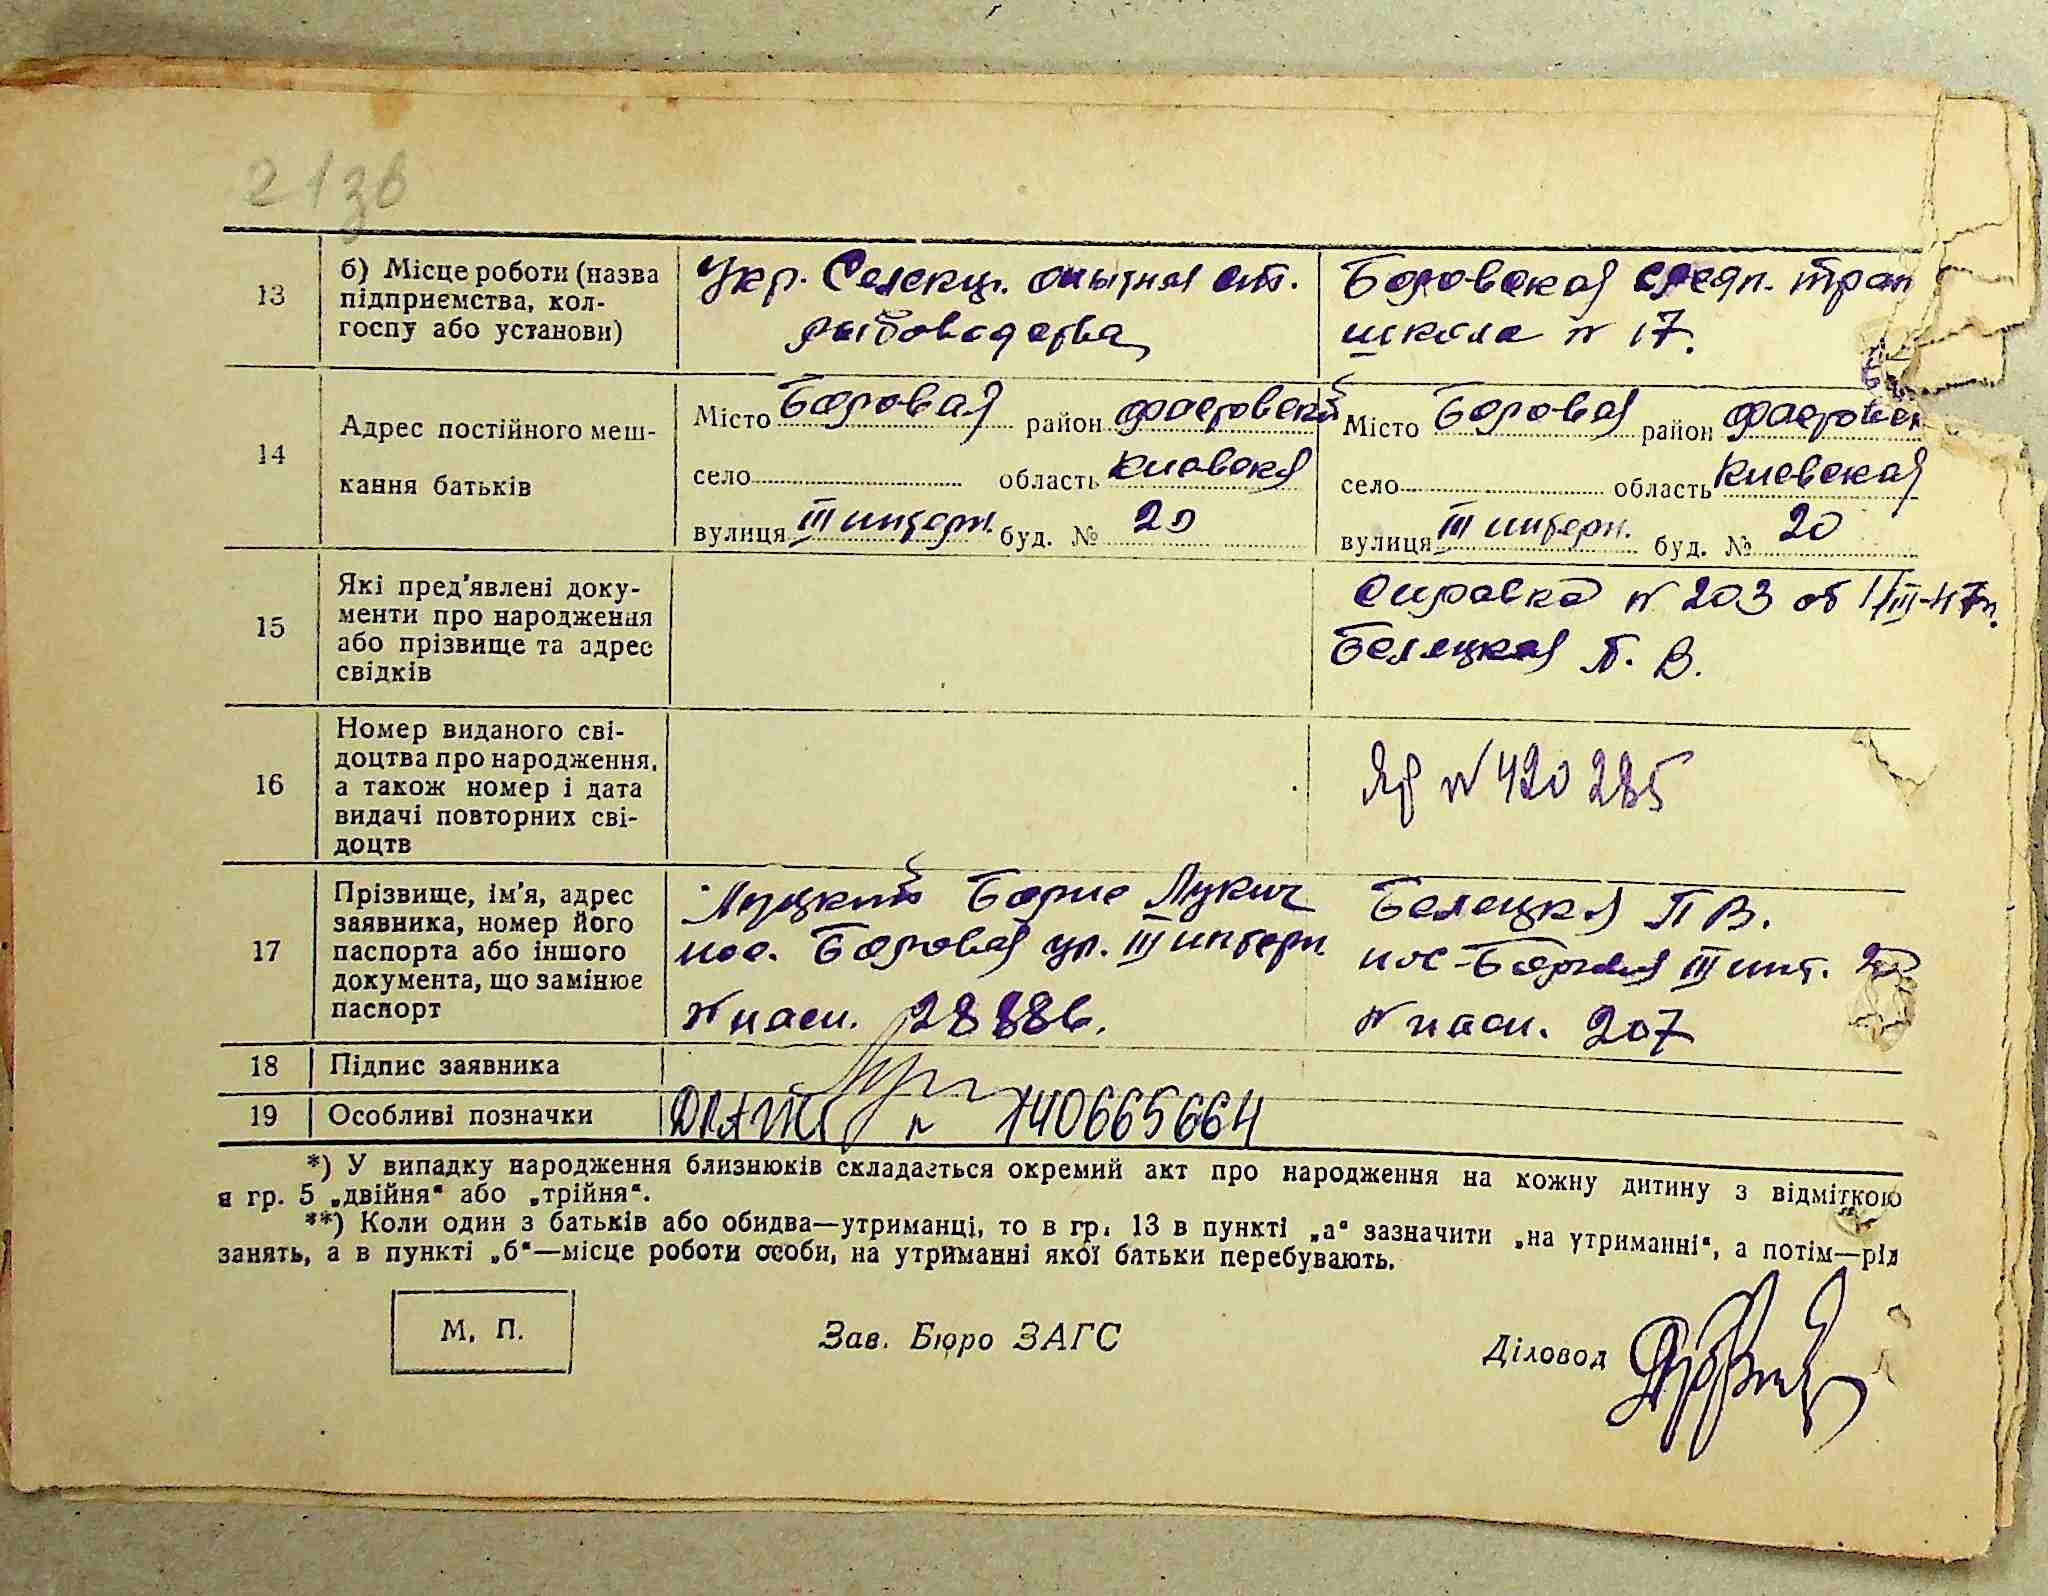 21зв
13
б) Місце роботи (назва
підприємства, кол-
госпу або установи)
Укр. Селекц. опытная ст.
рыбоводства
Боровская средн. тран
школа N 17.
14
Адрес постійного меш-
кання батьків
Місто Боровая район Фастовский
село область Киевская
вулиця III интерн. буд. № 20
Місто Боровая район Фастовск
село область Киевская
вулиця III интерн. буд. № 20
15
Які пред'явлені доку-
менти про народження
або прізвище та адрес
свідків
Справка N 203 от 1/III-47г.
Белецкая П. В.
16
Номер виданого сві-
доцтва про народження,
а також номер і дата
видачі повторних сві-
доцтв
N 420285
17
Прізвище, ім'я, адрес
заявника, номер його
паспорта або іншого
документа, що замінює
паспорт
Луцкий Борис Лукич
пос. Боровая ул. III интерн.
N пасп. 28886.
Белецкая П В.
пос-Боровая III инт. 20
N пасп. 207
18
Підпис заявника
19
Особливі позначки
N 140665664
*) У випадку народження близнюків складається окремий акт про народження на кожну дитину з відміткою
в гр. 5 „двійня“ або „трійня“.
**) Коли один з батьків або обидва—утриманці, то в гр. 13 в пункті „а“ зазначити „на утриманні“, а потім—рід
занять, а в пункті „б“—місце роботи особи, на утриманні якої батьки перебувають.
М. П.
Зав. Бюро ЗАГС
Діловод